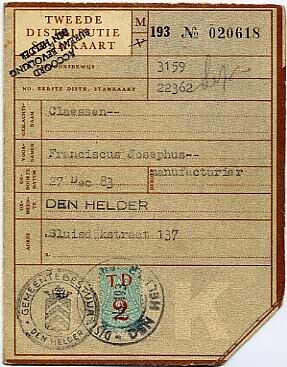 TWEEDE
DISTRIBUTIE
STAMKAART
M
193 № 020618
AKKOORD
BEVOLKING
DEN HELDER
3159
NO. EERSTE DISTR. STAMKAART
22362
GESLACHTS-
NAAM
Claessen--
VOOR-
NAMEN
Franciscus Josephus--
GE-
BOORTE-
DATUM
27 Dec 83
BEROEP
manufacturier
DEN HELDER
ADRES
1.
Sluisdijkstraat 137
2.
GEMEENTEBESTUUR
DEN HELDER
T.D
2
DIS
DEN HEL
K